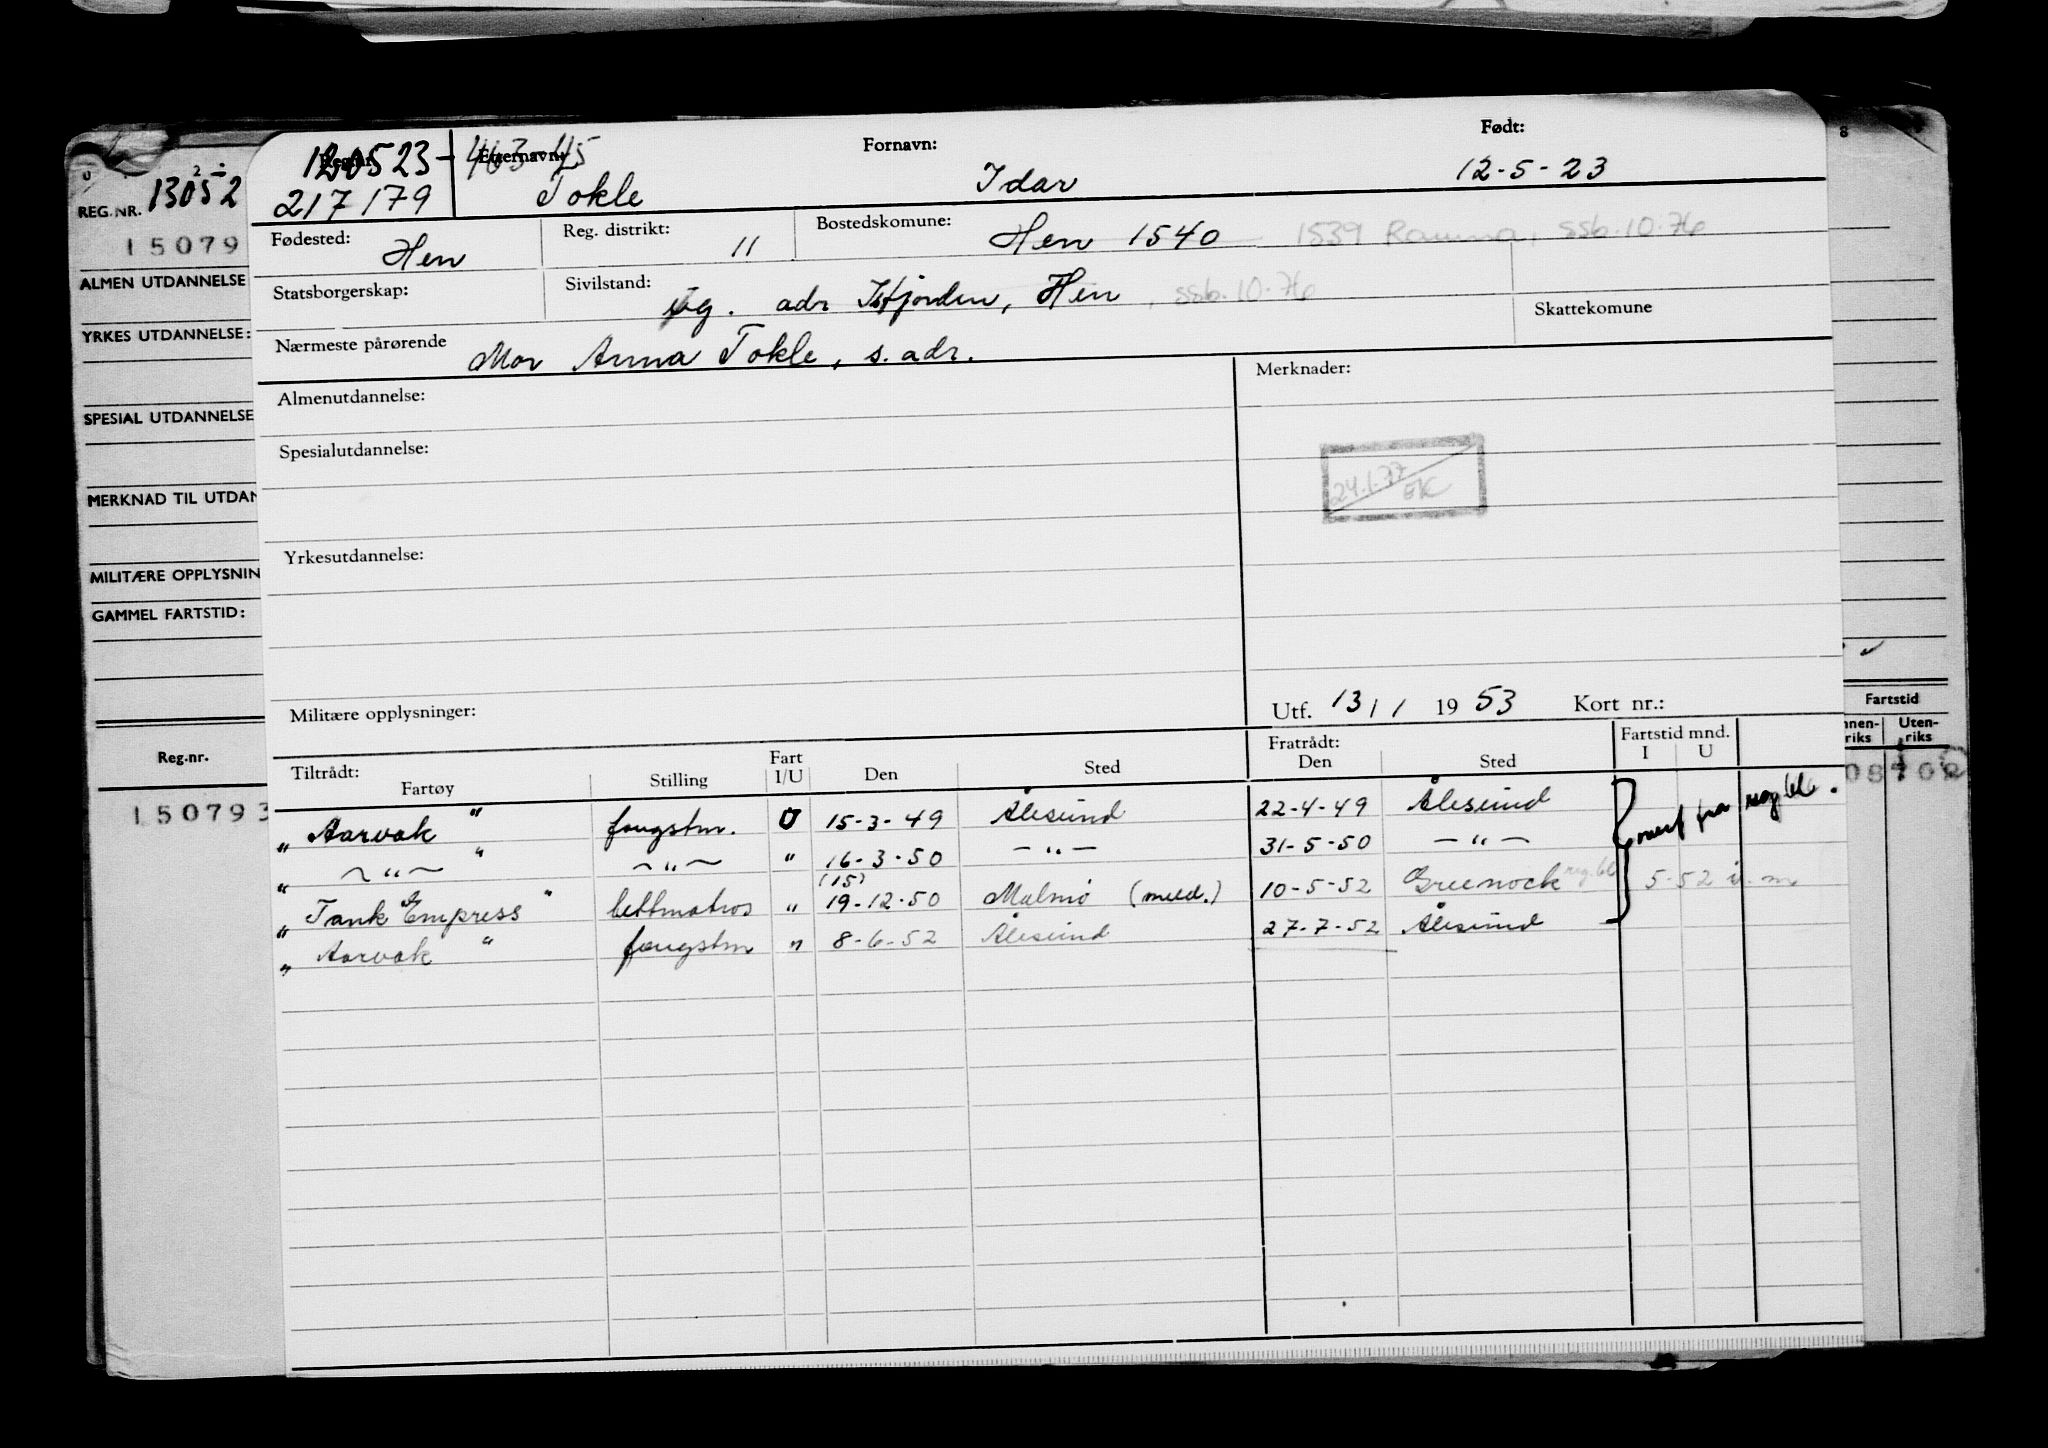 120523-46345
Reg.nr. Etternavn: Fornavn: Født:
217179 Tokle Idar 12-5-23
Fødested: Hen Reg. distrikt: 11 Bostedskomune: Hen 1540 1539 Rauma, ssb.10.76
Statsborgerskap: Sivilstand: ug. adr Isfjorden, Hen, ssb.10.76 Skattekomune
Nærmeste pårørende Mor Anna Tokle, s. adr.
Almenutdannelse: Merknader:
Spesialutdannelse:
24.1.77
Yrkesutdannelse:
Militære opplysninger: Utf. 13/1 1953 Kort nr.:
Tiltrådt: Fratrådt: Fartstid mnd.
Fartøy Stilling Fart I/U Den Sted Den Sted I U
" Aarvak " fangstm. U 15-3-49 Ålesund 22-4-49 Ålesund
" — " — " — " — " 16-3-50 — " — 31-5-50 — " —
(15)
" Tank Empress " lettmatros " 19-12-50 Malmø (meld.) 10-5-52 Greenock reg.bl. 5-52 i.m
" Aarvak " fangstm " 8-6-52 Ålesund 27-7-52 Ålesund
overf fra reg bl.
REG.NR. 13052
15079
ALMEN UTDANNELSE
YRKES UTDANNELSE:
SPESIAL UTDANNELSE
MERKNAD TIL UTDAN
MILITÆRE OPPLYSNIN
GAMMEL FARTSTID:
Reg.nr.
150793
8
Fartstid
nnen-riks Uten-riks